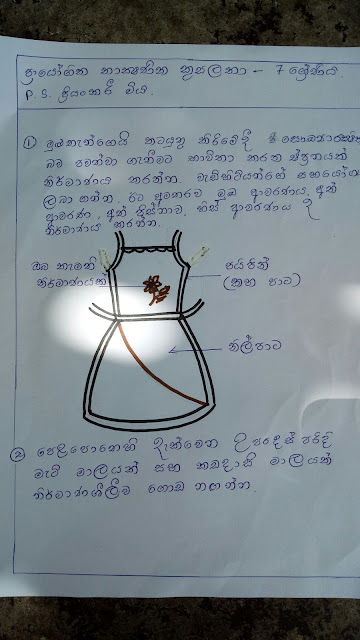 ප්‍රායෝගික තාක්ෂණික කුසලතා - 7 ශ්‍රේණිය.
P. S. ප්‍රියංකරී මිය.
① මුළුතැන්ගෙයි කටයුතු කිරිමේදී සෞඛ්‍යාරක්ෂා
ඔබ පවත්වා ගැනීමට භාවිතා කරන ඒප්‍රනයක්
නිර්මාණය කරන්න. වැඩිහිටියන්ගේ සහයෝගය
ලබා ගන්න. ඊට අමතරව මුඛ ආවරණය, අත්
ආවරණ, අත් පිස්නාව, හිස් ආවරණය ද
නිර්මාණය කරන්න.
ඔබ කැමති
නිර්මාණයක්
පයිප්න්
(කහ පාට)
නිල්පාට
② පෙළපොතෙහි දැක්වෙන උපදෙස් පරිදි
මැටි මාලයක් සහ කඩදාසි මාලයක්
නිර්මාණශීලීව ගොඩ නගන්න.